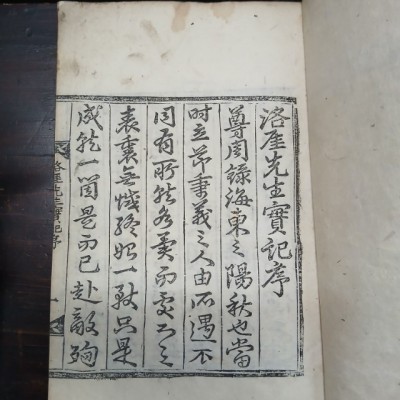 洛厓先生實記序
尊周錄海東之陽秋也當
時立節秉義之人由所遇不
同有所就各異而要之
表裏無憾終始一致只是
成就一箇是而已赴敵殉
洛厓先生實記序